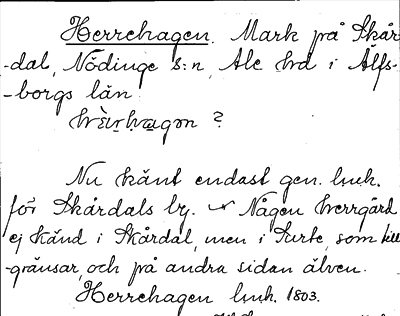 Herrehagen. Mark på Skår-
-dal, Nödinge s:n, Ale hd i Älfs-
-borgs län
?
Nu känt endast gen. luk.
för Skårdals by. Någon herrgård
ej känd i Skårdal, men i Surte, som till
-gränsar, och på andra sidan älven.
Herrehagen luk. 1803.